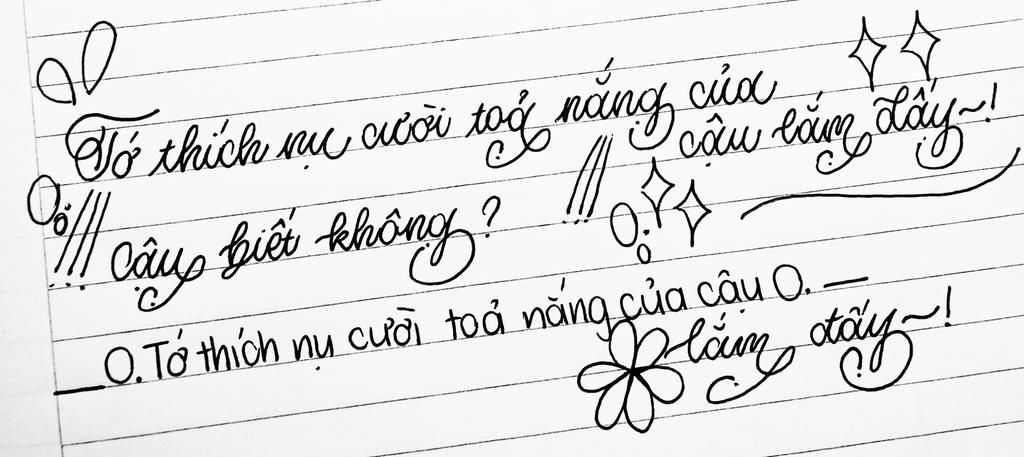 Tớ thích nụ cười toả nắng của
cậu lắm đấy~!
cậu biết không?
O. Tớ thích nụ cười toả nắng của cậu O. —
lắm đấy~!